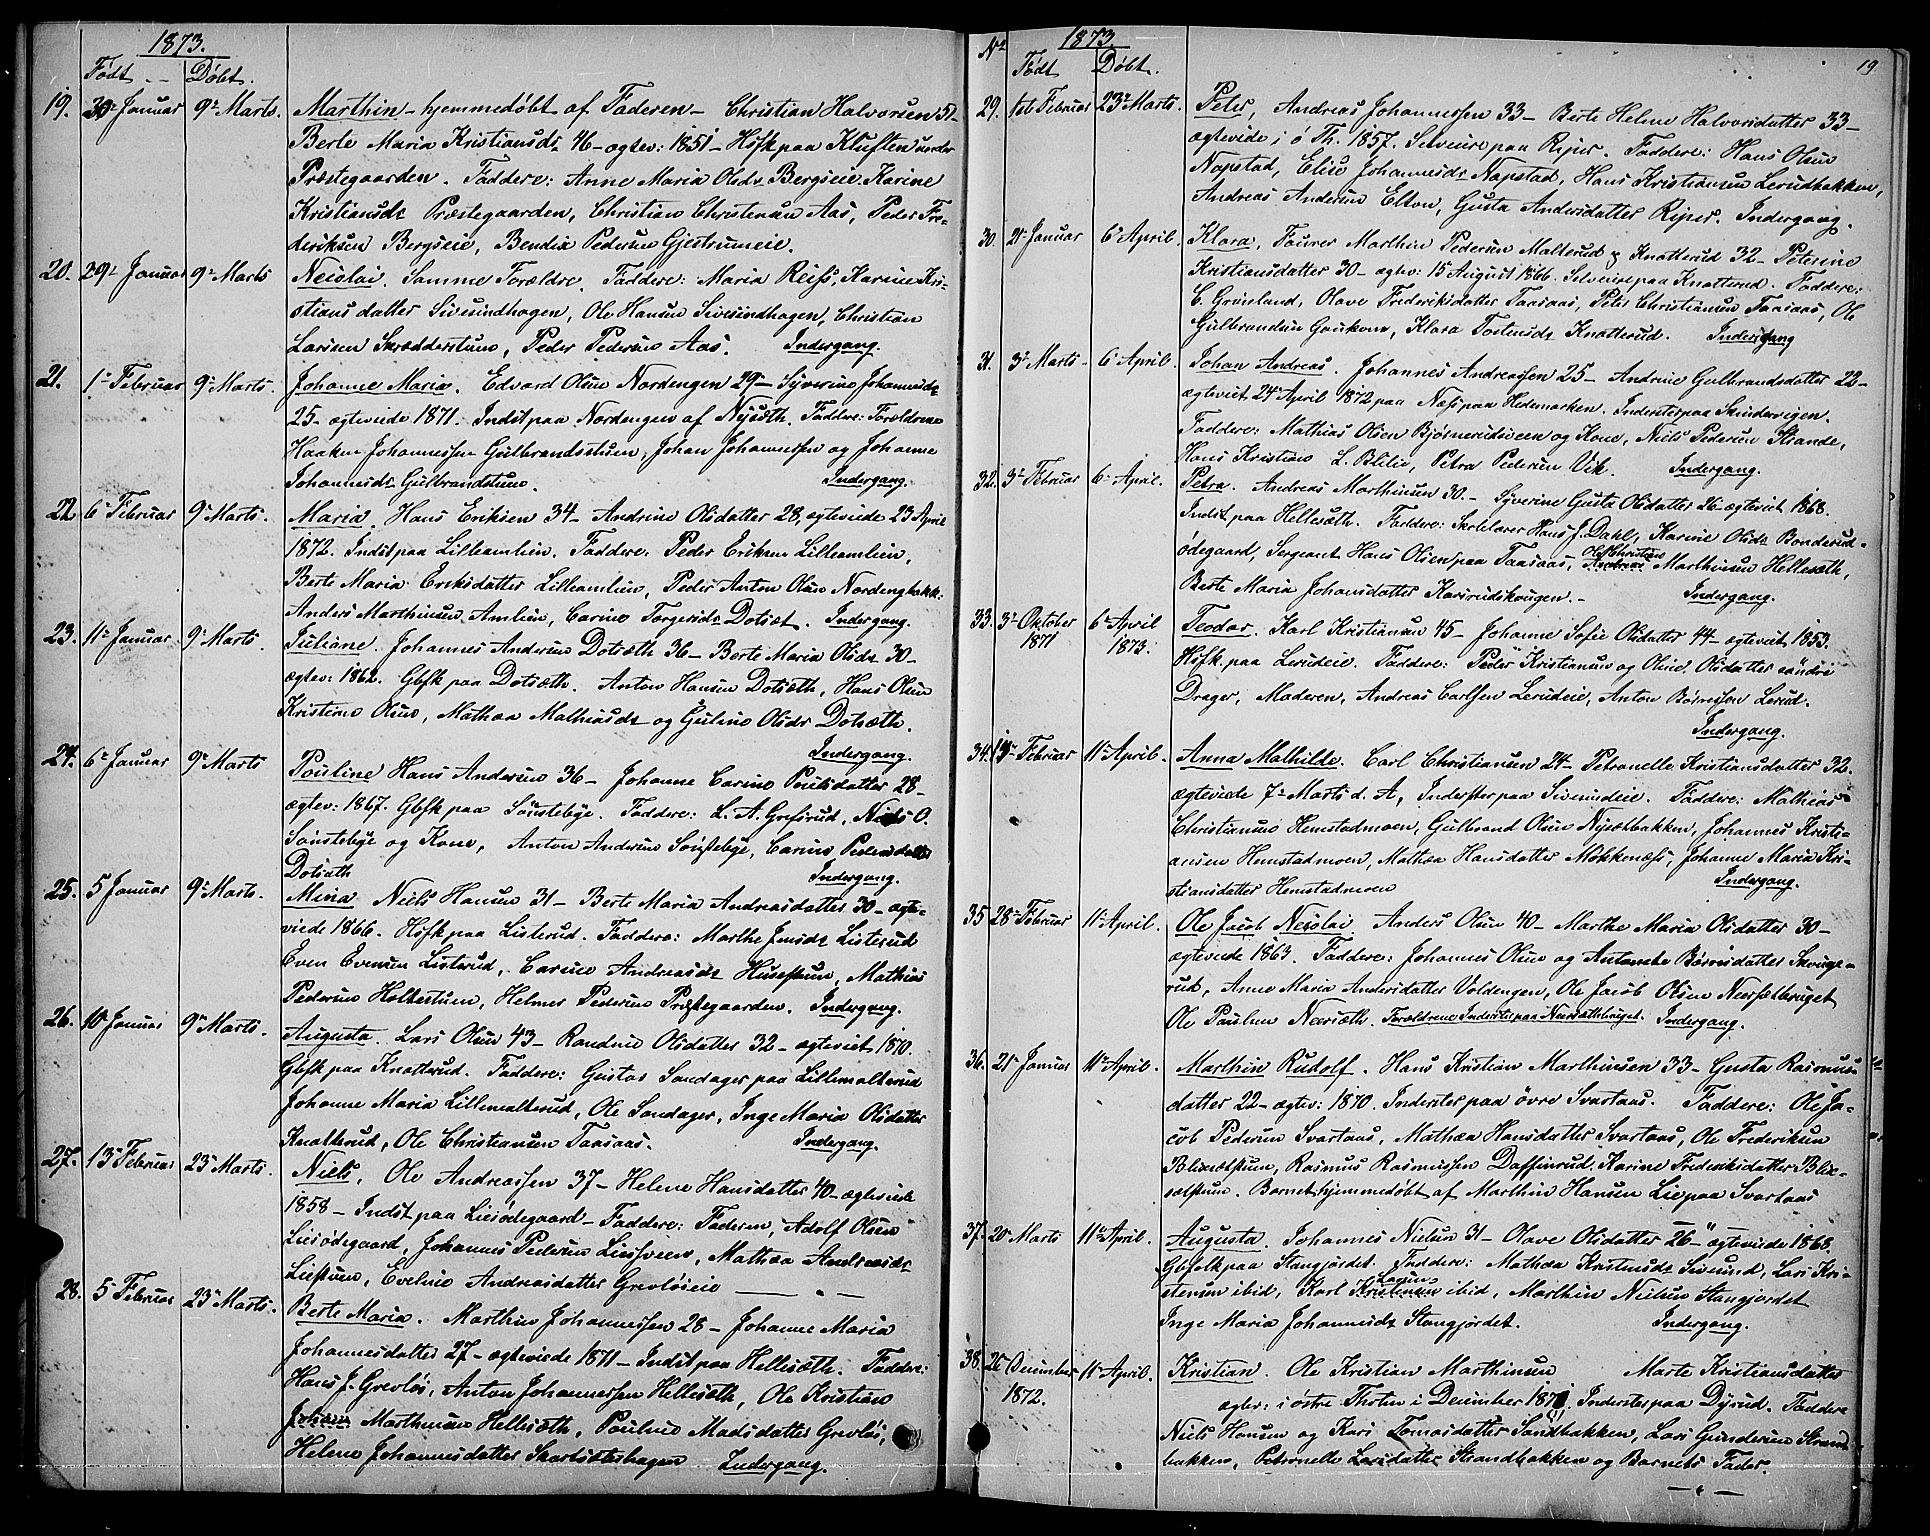 1873.
Født - Døbt.
19. 30te Januar 9de Marts. Marthin - hjemmedøbt af Faderen - Christian Halvorsen 51
Berte Maria Kristiansdr 46 - ægtev: 1851 - Hsfk paa Kluften under
Præstegaarden. Faddere: Anne Maria Olsdr Bergseie, Karine
Kristiansdr Præstegaarden, Christian Christensen Aas, Peder Fre-
deriksen Bergseie, Bendix Pedersen Gjestrumeie.
20. 29de Januar 9de Marts Nicolai. Samme Forældre. Faddere: Maria Reiss, Karine Kri-
stiansdatter Sivesindhagen, Ole Hansen Sivesindhagen, Christian
Larsen Skrædderstuen, Peder Pedersen Aas. Indergang.
21. 1ste Februar 9de Marts. Johanne Maria. Edvard Olsen Nordengen 29 - Syverine Johannesdr
25 - ægteviede 1871. Indst paa Nordengen af Nysæth. Faddere: Forældrene
Haaken Johannessen Gulbrandsstuen, Johan Johannessen og Johanne
Johannesdr Gulbrandstuen. Indergang.
22 6te Februar 9de Marts. Maria. Hans Eriksen 34 - Andrine Olsdatter 28, ægteviede 23 April
1872. Indst paa Lilleamlien. Faddere: Peder Eriksen Lilleamlien,
Berte Maria Eriksdatter Lilleamlien, Peder Anton Olsen Nordengbakk.
Anders Marthinsen Amlien, Carine Torgersdr Dotset. Indergang.
23. 11te Januar 9de Marts. Juliane. Johannes Andersen Dotsæth 36 - Berte Maria Olsdr 30 -
ægtev: 1862. Gbfk paa Dotsæth. Anton Hansen Dotsæth, Hans Olsen
Kristerne Olsen, Mathea Mathiasdr og Guline Olsdr Dotsæth.
Indergang.
24. 6te Januar 9de Marts Pouline Hans Andersen 36 - Johanne Carine Poulsdatter 28 -
ægtev: 1867. Gbfk paa Sönstebye. Faddere: L. A. Grefsrud, Niels O.
Sønstebye og Kone, Anton Andersen Sønstebye, Carine Pedersdatter
Dotsæth Indergang.
25. 5 Januar 9de Marts. Mina. Niels Hansen 31 - Berte Maria Andreasdatter 30 - ægte-
viede 1866. Hsfk paa Listerud. Faddere: Marthe Jensdr Listerud
Even Evensen Listerud, Carine Andreasdr Huusstuen, Mathias
Pedersen Holterstuen, Helmer Pedersen Præstegaarden. Indergang.
26. 10de Januar 9de Marts. Augusta. Lars Olsen 43 - Randine Olsdatter 32 - ægteviet 1870.
Gbfk paa Knatterud. Faddere: Gustav Sandager paa Lillemalterud
Johanne Maria Lillemalterud, Ole Sandager, Inge Maria Olsdatter
Knatterud, Ole Christiansen Taasaas. Indergang.
27. 13de Februar 23de Marts. Niels. Ole Andreassen 37 - Helene Hansdatter 40 - ægteviede
1858 - Indst paa Liesødegaard - Faddere: Faderen, Adolf Olsen
Liesødegaard, Johannes Pedersen Liessveen, Mathea Andreasdr
Liestuen, Eveline Andreasdatter Grevløseie — " —
28. 5 Februar 23de Marts. Berte Maria. Marthin Johannessen 28 - Johanne Maria
Johannesdatter 27 - ægteviede 1871 - Indst paa Hellesæth. Faddere:
Hans J. Grevløs, Anton Johannessen Hellesæth, Ole Kristian
Johan Marthinsen Hellesæth, Pouline Madsdatter Grevløs,
Helene Johannesdatter Skartsæterhagen Indergang.
19
No 1873.
Født Døbt.
29. 1ste Februar 23de Marts. Peter, Andreas Johannessen 33 - Berte Helene Halvorsdatter 33 -
ægteviede i ö Th. 1857. Selveiere paa Riper. Faddere: Hans Olsen
Napstad, Elise Johannesdr Napstad, Hans Kristiansen Lerudbakken,
Andreas Andersen Elton, Gusta Andersdatter Riper. Indergang.
30. 21de Januar 6te April. Klara, Fourer Marthin Pedersen Malterud & Knatterud 32 - Peterine
Kristiansdatter 30 - ægtev: 15 August 1866. Selveiere paa Knatterud. Faddere:
C. Grönland, Olave Frederiksdatter Taasaas, Peter Christiansen Taasaas, Ole
Gulbrandsen Gaukom, Klara Tostensdr Knatterud. Indergang
31. 3de Marts - 6te April Johan Andreas. Johannes Andreassen 25 - Andrine Gulbrandsdatter 22 -
ægteviet 24de April 1872 paa Næs paa Hedemarken. Inderster paa Skindervigen.
Faddere: Mathias Olsen Bjørnerudsveen og Kone, Niels Pedersen Strande,
Hans Kristian L. Blilie, Petra Pedersen Vik. Indergang.
32. 3de Februar 6te April. Petra. Andreas Marthinsen 30. - Syverine Gusta Olsdatter 26 - ægteviet 1868.
Indst paa Hellesæth. Faddere: Skolelærer Hans J. Dahl, Karine Olsdr Bonderud-
ødegaard, Sergeant Hans Olsen paa Taasaas, Ole Christian Andreas Marthinsen Hellesæth,
Berte Maria Johansdatter Karsrudskougen. - Indergang.
33. 3de Oktober 1871 6te April 1873. Teodor. Karl Kristiansen 45 - Johanne Sofie Olsdatter 44 - ægteviet 1853.
Hsfk. paa Lerudeie. Faddere: Peder Kristiansen og Oline Olsdatter söndre
Drager, Moderen, Andreas Carlsen Lerudeie, Anton Børresen Lerud.
Indergang.
34. 19de Februar 11te April. Anna Mathilde. Carl Christiansen 24 - Petronelle Kristiansdatter 32.
ægteviede 7de Marts d. A, Inderster paa Sivesindeie. Faddere: Mathias
Christiansen Hemstadmoen, Gulbrand Olsen Nysætbakken, Johannes Kristi-
ansen Hemstadmoen, Mathea Hansdatter Mökkenæss, Johanne Maria Kri-
stiansdatter Hemstadmoen Indergang.
35 28de Februar 11te April. Ole Jacob Nicolai. Anders Olsen 40 - Marthe Maria Olsdatter 30 -
ægteviede 1863. Faddere: Johannes Olsen og Antonette Børresdatter Skonge-
rud, Anne Maria Andersdatter Voldengen, Ole Jacob Olsen Neersetbruget
Ole Paulsen Neersæth. Forældrene Inderster paa Neersæthbruget. Indergang.
36. 21de Januar 11te April. Marthin Rudolf. Hans Kristian Marthinsen 33 - Gusta Rasmus-
datter 22 - ægtev: 1870. Inderster paa övre Svartaas. Faddere: Ole Ja-
cob Pedersen Svartaas, Mathea Hansdatter Svartaas, Ole Frederiksen
Blixætstuen, Rasmus Rasmussen Daffinrud. Karine Frederiksdatter Blix-
sætstuen. Barnet hjemmedøbt af Marthin Hansen Lie paa Svartaas
37. 20de Marts 11te April. Augusta. Johannes Nielsen 31 - Olave Olsdatter 26 - ægteviede 1868.
Gbfolk paa Stangjordet. Faddere: Mathea Kristensdr Sivesind, Lars Kri-
stensen ibid, Karl Larsen Kristensen ibid, Marthin Nielsen Stangjordet
Inge Maria Johannesdr Stangjordet. Indergang.
38. 26 December 1872. 11te April. Kristian. Ole Kristian Marthinsen Marte Kristiansdatter
ægtev: i østre Thoten i December 1871. Inderster paa Dyrud. Faddere
Niels Hansen og Kari Tomasdatter Sandbakken, Lars Gundersen Strand
bakken, Petronelle Larsdatter Strandbakken og Barnets Fader.
— " —